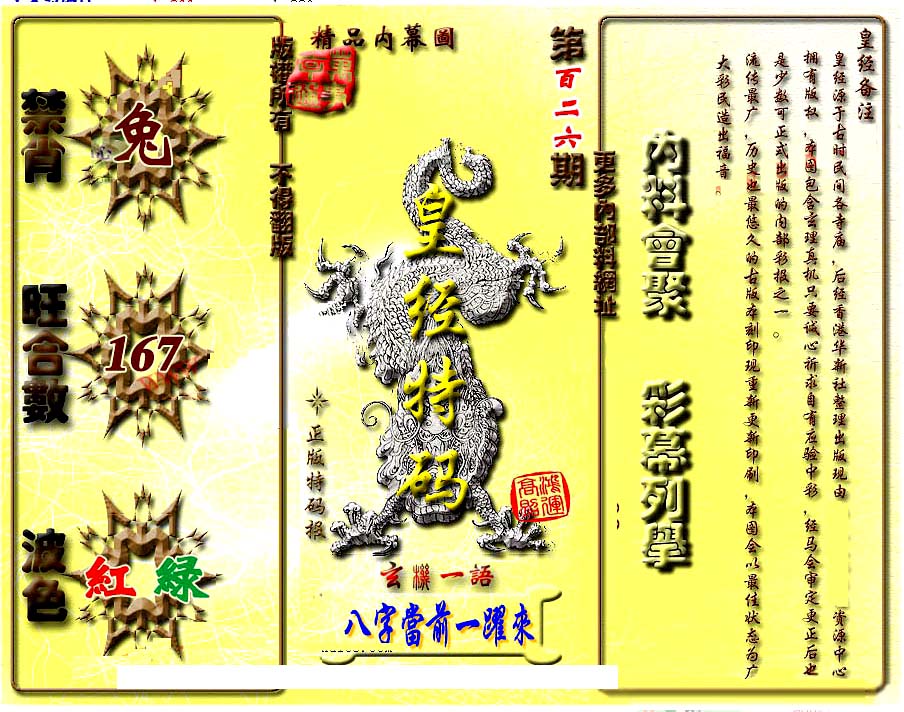 精品内幕圖
第百二六期
版權所有 不得翻版
更多內部料網址
禁肖
兔
旺合數
167
波色
紅 綠
皇经特码
正版特码报
鴻運高照
玄機一語
八字當前一躍來
內料會聚
彩幕列舉
皇经备注
皇经源于古时民间各寺庙，后经香港华新社整理出版现由 资源中心
拥有版权，本图包含玄理真机只要诚心祈求自有应验中彩，经马会审定更正后也
是少数可正式出版的内部彩报之一。
流传最广，历史也最悠久的古版本刻印现重新更新印刷，本图会以最佳状态为广
大彩民造出福音。